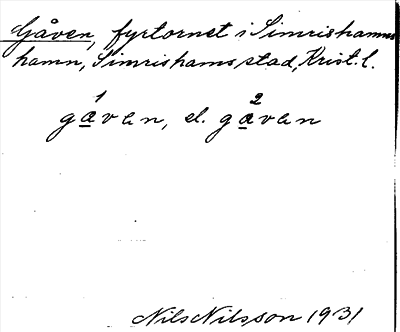 Gåven, fyrtornet i Simrishamns
hamn, Simrishams stad, Krist. l.
1 2
gavən, el. gavən
Nils Nilsson 1931